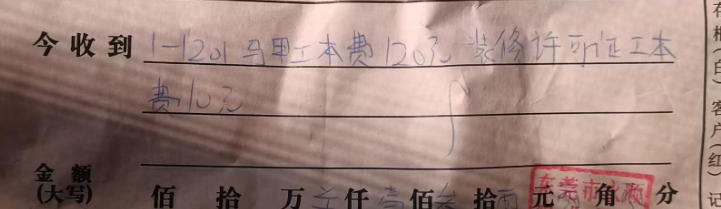 今收到 1-1201 马甲工本费120元 装修许可证工本
费10元
金额
(大写) 佰 拾 万 仟壹佰叁拾 元 角 分
东莞市永顺
白 客户(红) 记